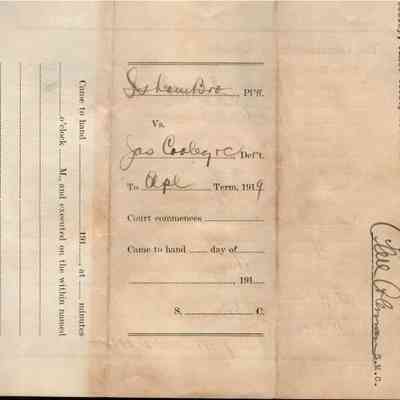 Came to hand
191__, at ____ minutes
o'clock ____ M., and executed on the within named
Pl'ff.
Vs.
Jas Cooley &c. Def't.
To Apl Term, 1919
Court commences
Came to hand ____ day of
, 191__
S. C.
Coleman S. K. C.